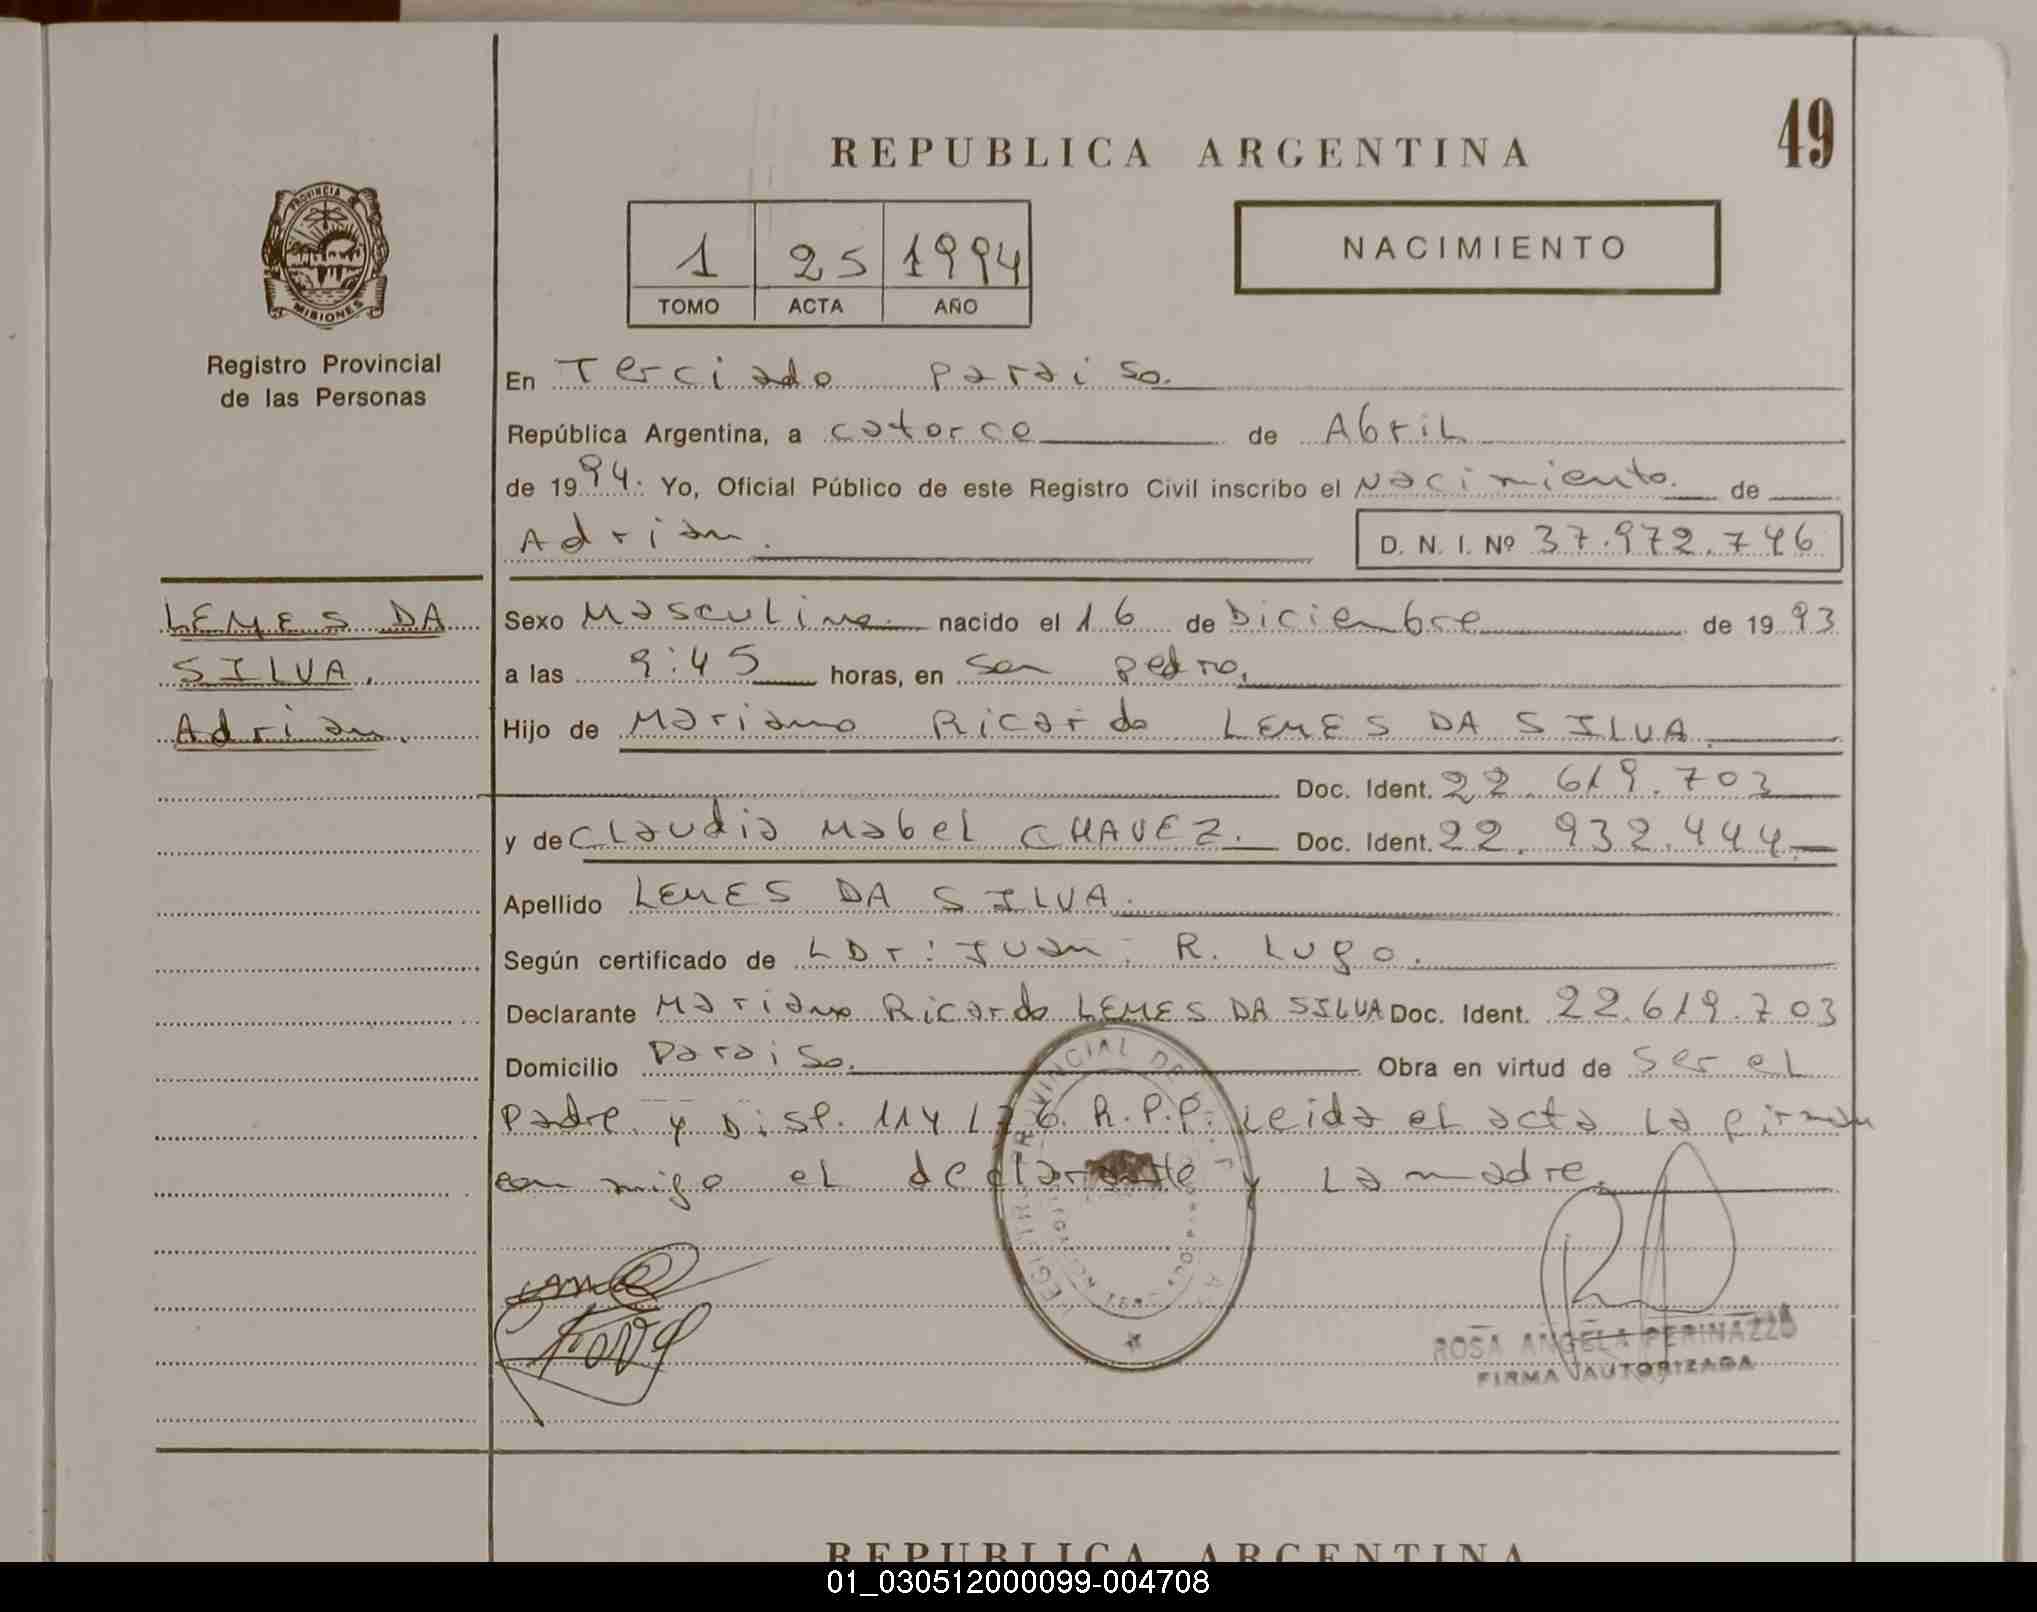 49
REPUBLICA ARGENTINA
PROVINCIA
MISIONES
1 25 1994
TOMO ACTA AÑO
NACIMIENTO
Registro Provincial
de las Personas
En Terciado paraiso.
República Argentina, a catorce de Abril
de 1994. Yo, Oficial Público de este Registro Civil inscribo el Nacimiento. de
Adrian.
D. N. I. Nº 37.972.746
LEMES DA
SILVA.
Adrian.
Sexo Masculino nacido el 16 de Diciembre de 1993
a las 9:45 horas, en San pedro.
Hijo de Mariano Ricardo LEMES DA SILVA.
Doc. Ident. 22.619.703
y de Claudia Mabel CHAVEZ. Doc. Ident. 22.932.444.
Apellido LEMES DA SILVA.
Según certificado de LDr: Juan. R. Lugo.
Declarante Mariano Ricardo LEMES DA SILVA Doc. Ident. 22.619.703
Domicilio Paraiso. Obra en virtud de Ser el
Padre. y Disp. 114/76. R.P.P. Leida el acta La firman
con migo el declarante y La madre.
ROSA ANGELA PERINAZZO
FIRMA AUTORIZADA
REPUBLICA ARGENTINA
01_030512000099-004708